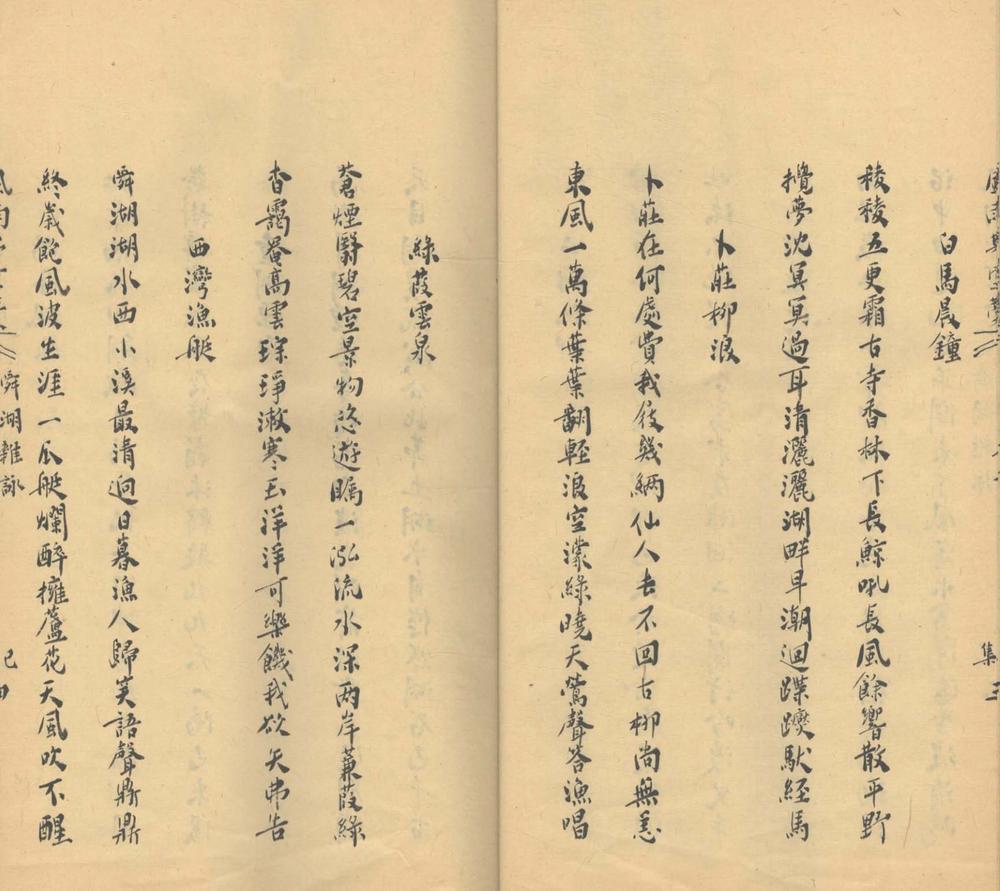 白馬晨鐘
稜稜五更霜古寺香林下長鯨吼長風餘響散平野
攪夢沈冥冥過耳清灑灑湖畔早潮迴蹀躞馱經馬
卜莊柳浪
卜莊在何處費我屐幾緉仙人去不回古柳尚無恙
東風一萬條葉葉翻輕浪空濛綠曉天鶯聲答漁唱
綠葭雲泉
蒼煙翳碧空景物恣遊矚一泓流水深兩岸蒹葭綠
杳靄菴高雲琮琤漱寒玉洋洋可樂饑我欲矢弗告
西灣漁艇
舜湖湖水西小溪最清迥日暮漁人歸笑語聲鼎鼎
終歲飽風波生涯一瓜艇爛醉擁蘆花天風吹不醒
舜湖雜詠
集